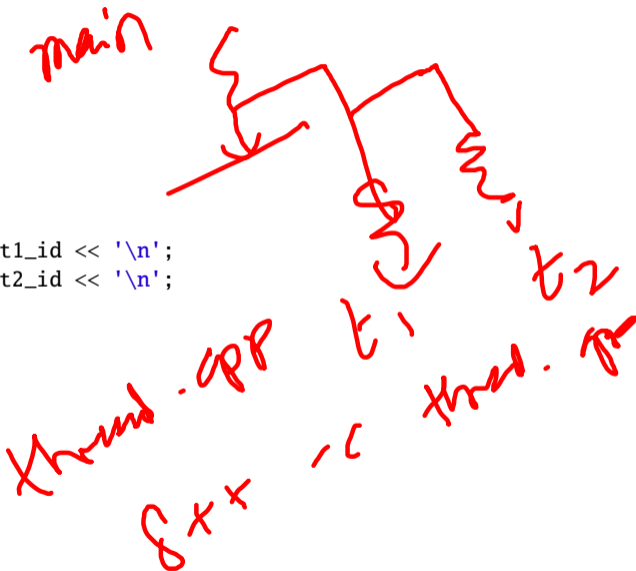 main
t1_id << '\n';
t2_id << '\n';
t2
t1
thread.cpp
g++ -c thread.cpp